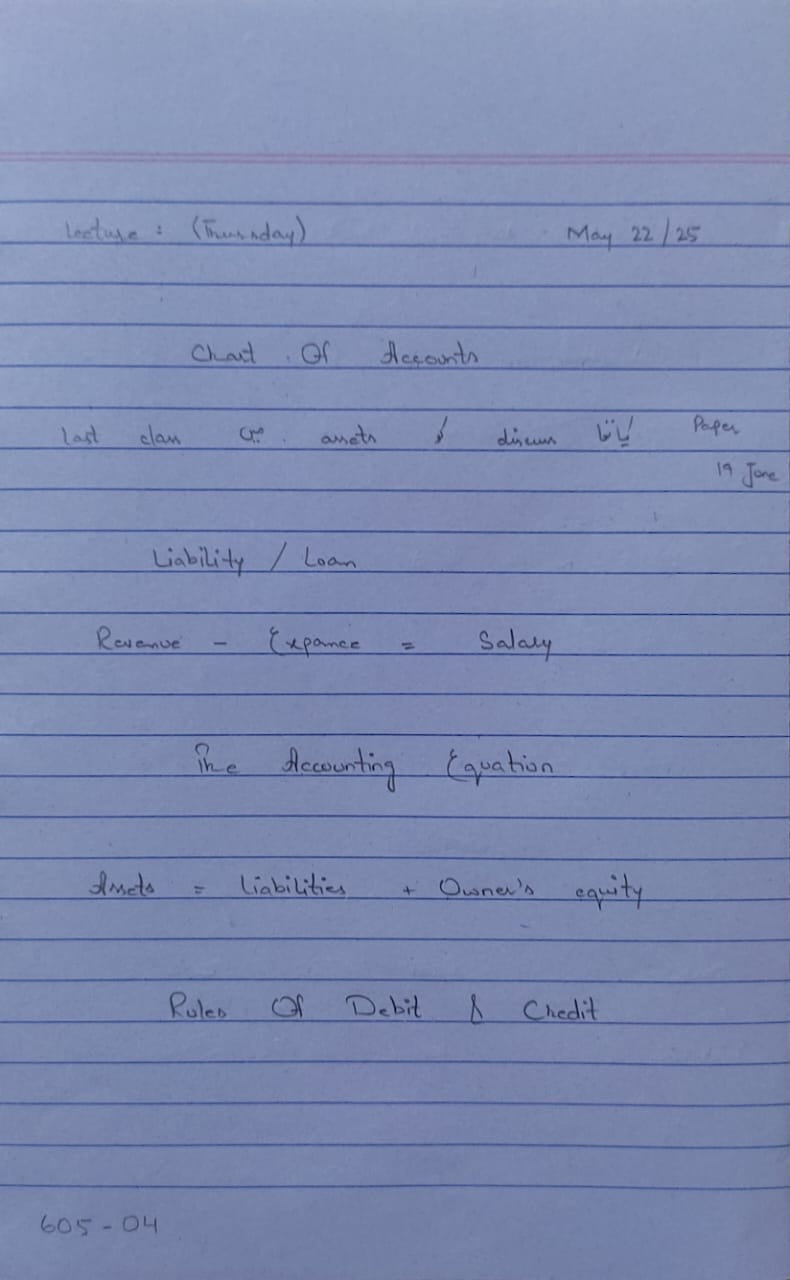 Lecture : (Thursday) May 22/25
Chart Of Accounts
Last class میں assets کو discuss کیا تھا Paper
19 June
Liability / Loan
Revenue - Expance = Salary
The Accounting Equation
Assets = Liabilities + Owner's equity
Rules Of Debit & Credit
605-04